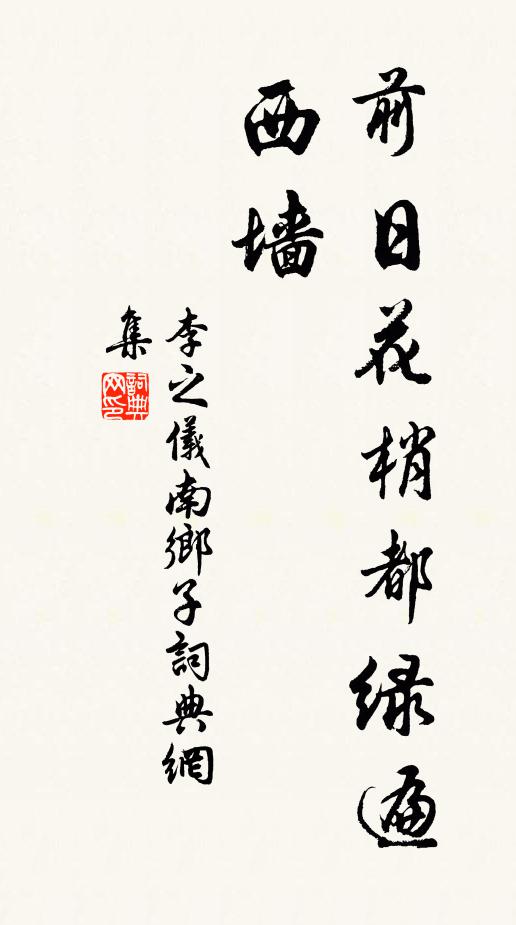 前日花梢都緑遍
西墙
李之儀南鄉子詞典網
集
詞典
网印